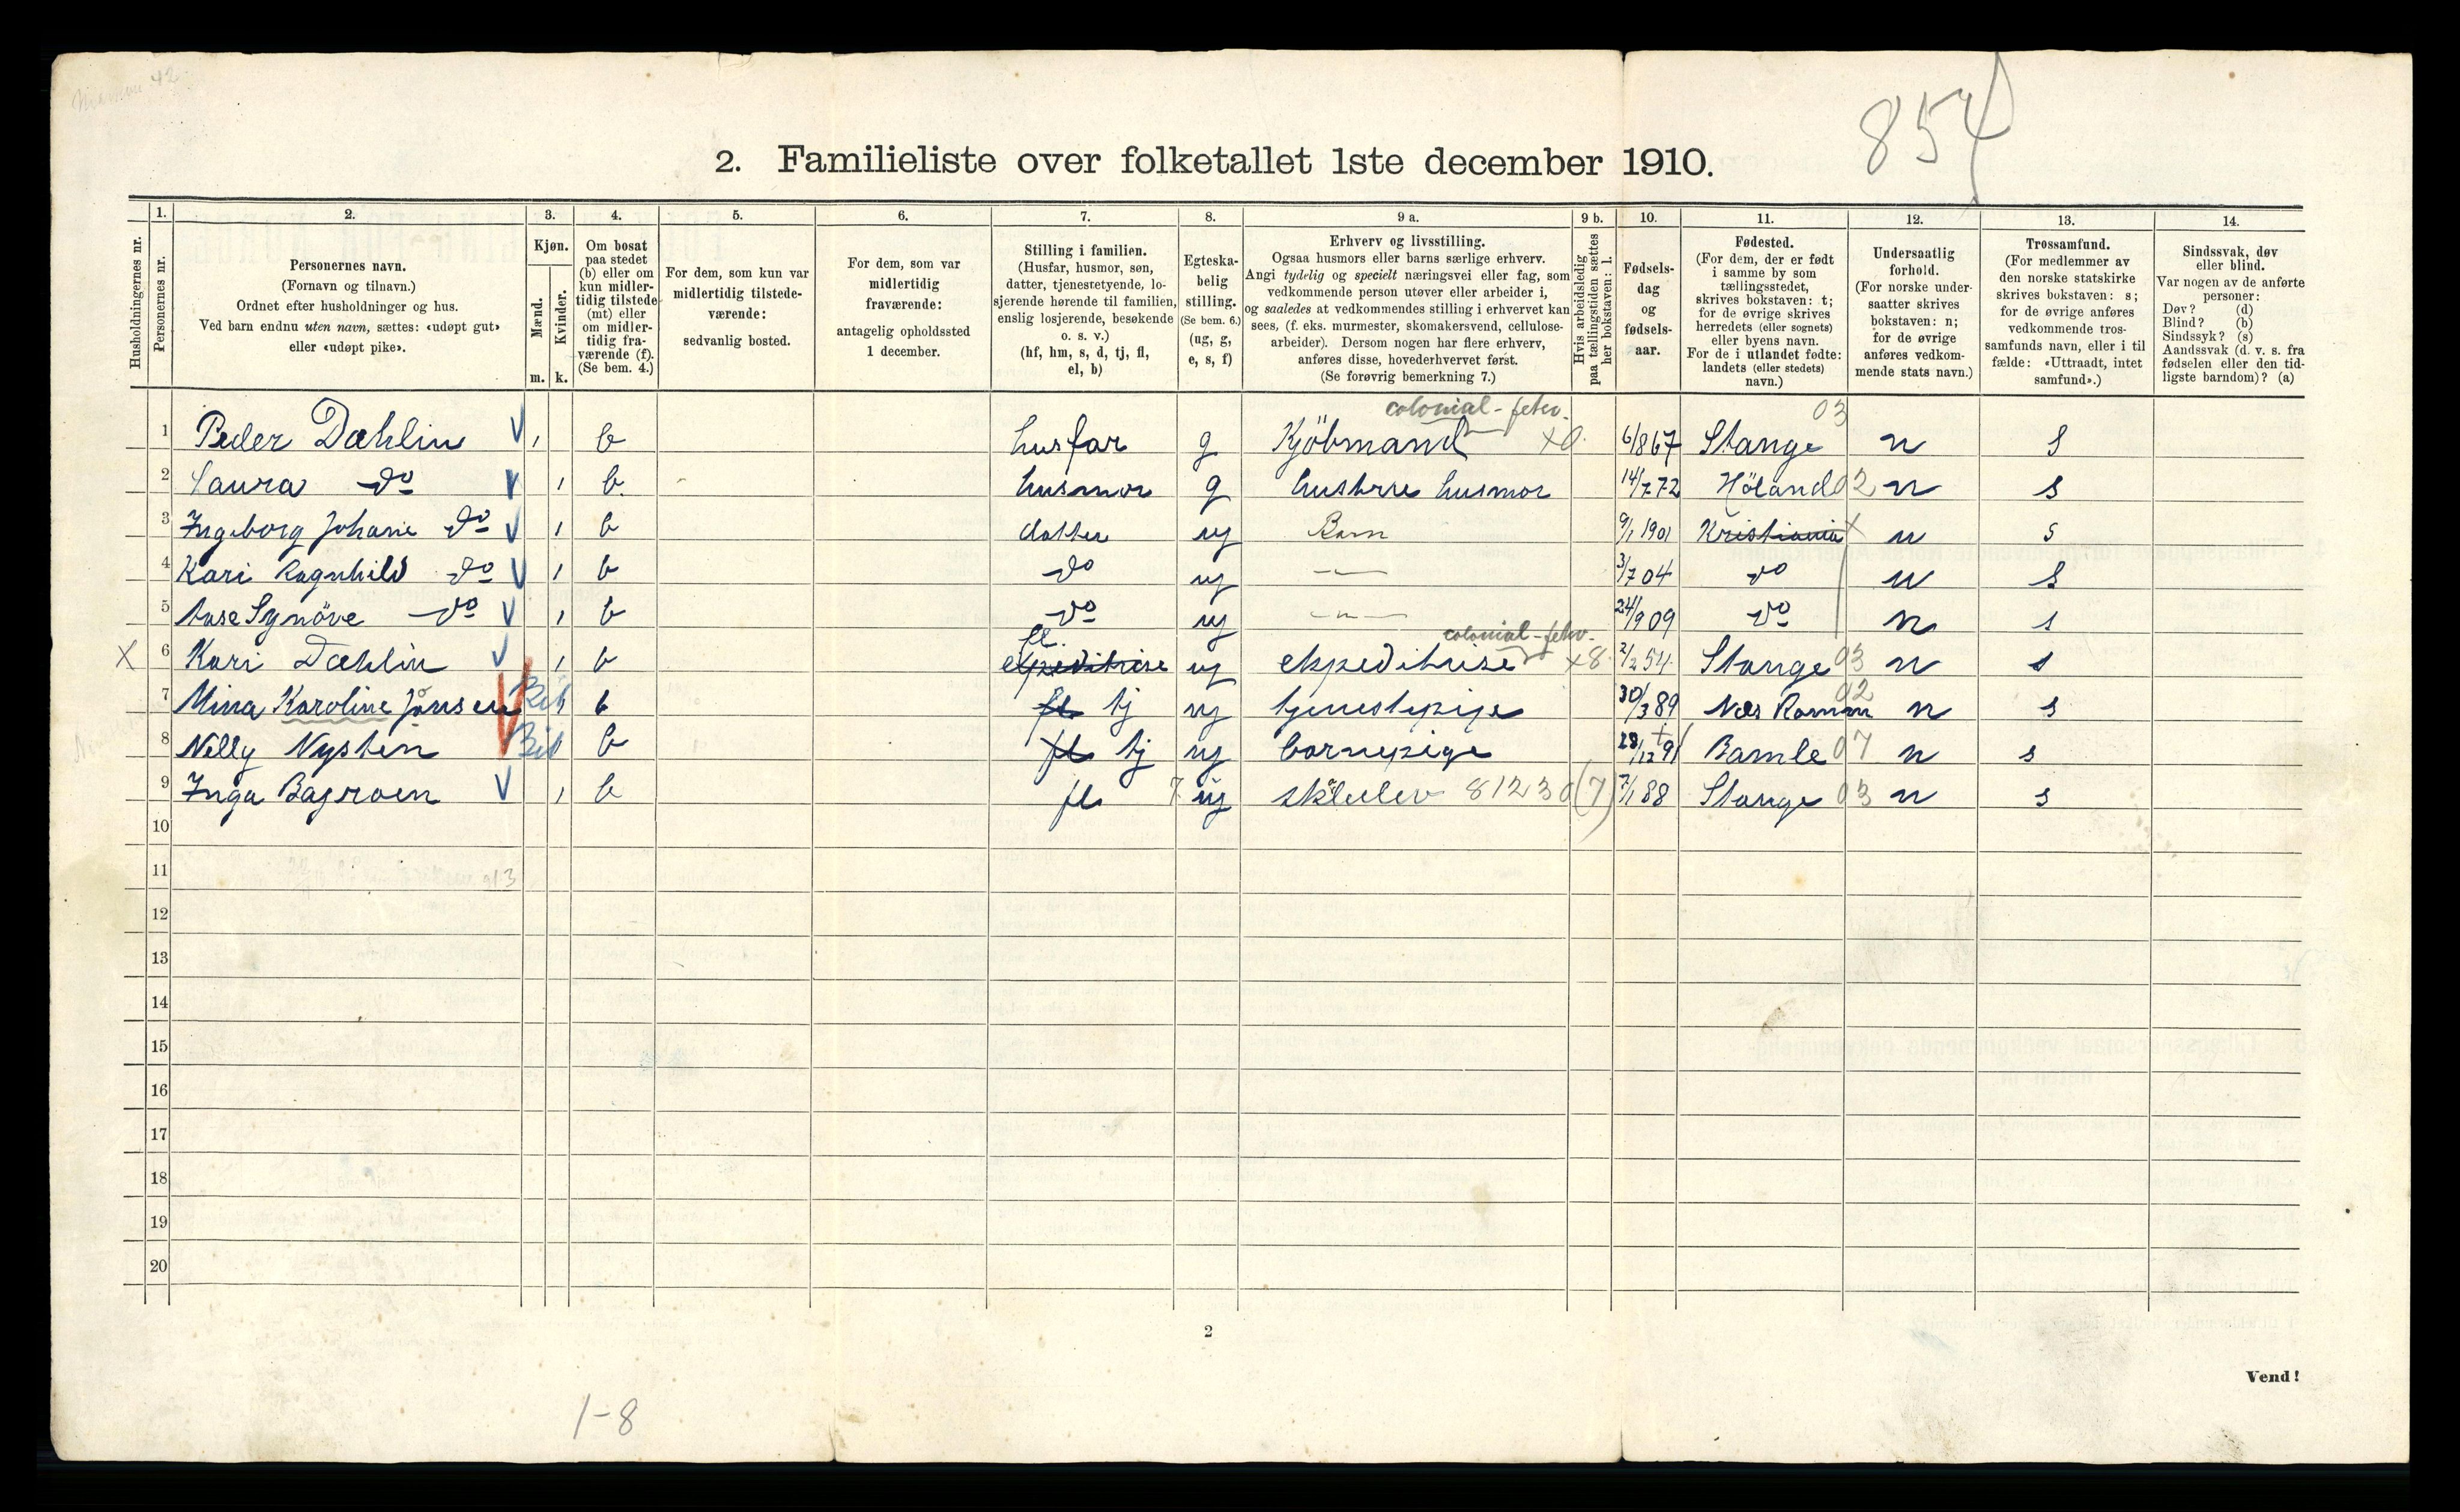 854
2. Familieliste over folketallet 1ste december 1910.
Husholdningernes nr.
1. Personernes nr.
2. Personernes navn.
(Fornavn og tilnavn.)
Ordnet efter husholdninger og hus.
Ved barn endnu uten navn, sættes: «udøpt gut»
eller «udøpt pike».
3. Kjøn.
Mænd. m.
Kvinder. k.
4. Om bosat
paa stedet
(b) eller om
kun midler-
tidig tilstede
(mt) eller
om midler-
tidig fra-
værende (f).
(Se bem. 4.)
5. For dem, som kun var
midlertidig tilstede-
værende:
sedvanlig bosted.
6. For dem, som var
midlertidig
fraværende:
antagelig opholdssted
1 december.
7. Stilling i familien.
(Husfar, husmor, søn,
datter, tjenestetyende, lo-
sjerende hørende til familien,
enslig losjerende, besøkende
o. s. v.)
(hf, hm, s, d, tj, fl,
el, b)
8. Egteska-
belig
stilling.
(Se bem. 6.)
(ug, g,
e, s, f)
9 a. Erhverv og livsstilling.
Ogsaa husmors eller barns særlige erhverv.
Angi tydelig og specielt næringsvei eller fag, som
vedkommende person utøver eller arbeider i,
og saaledes at vedkommendes stilling i erhvervet kan
sees, (f. eks. murmester, skomakersvend, cellulose-
arbeider). Dersom nogen har flere erhverv,
anføres disse, hovederhvervet først.
(Se forøvrig bemerkning 7.)
9 b. Hvis arbeidsledig
paa tællingstiden sættes
her bokstaven: l.
10. Fødsels-
dag
og
fødsels-
aar.
11. Fødested.
(For dem, der er født
i samme by som
tællingsstedet,
skrives bokstaven: t;
for de øvrige skrives
herredets (eller sognets)
eller byens navn.
For de i utlandet fødte:
landets (eller stedets)
navn.)
12. Undersaatlig
forhold.
(For norske under-
saatter skrives
bokstaven: n;
for de øvrige
anføres vedkom-
mende stats navn.)
13. Trossamfund.
(For medlemmer av
den norske statskirke
skrives bokstaven: s;
for de øvrige anføres
vedkommende tros-
samfunds navn, eller i til
fælde: «Uttraadt, intet
samfund».)
14. Sindssvak, døv
eller blind.
Var nogen av de anførte
personer:
Døv? (d)
Blind? (b)
Sindssyk? (s)
Aandssvak (d. v. s. fra
fødselen eller den tid-
ligste barndom)? (a)
colonial-fetev. 03
1 Peder Dæhlin V 1 b husfar g Kjöbmand x0. 6/8 67 Stange n s
2 Laura do V 1 b. husmor g husterue husmor 14/7 72 Höland 02 n s
3 Ingeborg Johane do V 1 b datter ug Barn 9/1 1901 Kristiania n s
4 Kari Ragnhild do V 1 b do ug —"— 3/7 04 do n s
5 Aase Synöve do V 1 b do ug —"— 24/9 09 do n s
fl. colonial-fetev.
X 6 Kari Dæhlin V 1 b expeditrise ug expeditrise x8. 2/2 54 Stange 03 n s
7 Mina Karoline Jonsen b fl tj ug tjenestepige 30/3 89 Næs Rom 02 n s
8 Nelly Nysten b fl tj ug barnepige 28/12 91 Bamle 07 n s
9 Inga Bagroen V 1 b fl 7 ug skolelev 81230 (7) 7/1 88 Stange 03 n s
10
11
12
13
14
15
16
17
18
19
20
2
Vend!
1-8